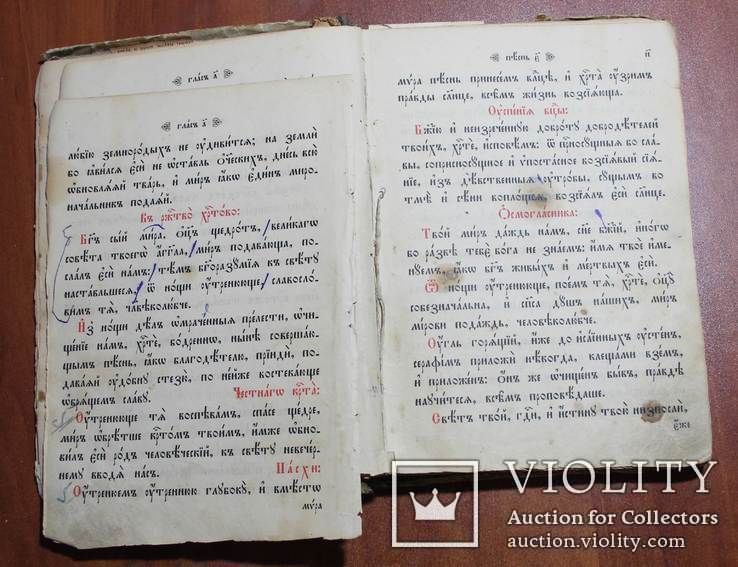 гла́съ а҃
гла́съ а҃
любі́ю земноро́дыхъ не ᲂу҆диви́тсѧ; на землѝ
бо ꙗ҆ви́всѧ є҆сѝ не ѡ҆ста́вль ѻ҆те́ческихъ, дне́сь всю̀
ѡ҆бновлѧ́ѧй тва́рь, и҆ ми́ръ ꙗ҆́кѡ є҆ди́нъ миро-
нача́льникъ пода́ѧй.
Въ ржⷭ҇тво̀ хрⷭ҇то́во:
Бг҃ъ сы́й ми́ра, ѻ҆ц҃ъ щедро́тъ, вели́кагѡ
совѣ́та твоегѡ̀ а҆́гг҃ла, ми́ръ подава́юща, по-
сла́лъ є҆сѝ на́мъ: тѣ́мъ бг҃оразꙋ́мїѧ къ свѣ́тꙋ
наста́вльшесѧ, ѿ но́щи ᲂу҆́тренююще, славосло́-
вимъ тѧ̀, чл҃вѣколю́бче.
И҆з̾ но́щи дѣ́лъ ѡ҆мраче́нныѧ пре́лести, ѡ҆чи-
ще́нїе на́мъ, хрⷭ҇тѐ, бо́дреннѡ, ны́нѣ соверша́ю-
щымъ пѣ́снь, ꙗ҆́кѡ благодѣ́телю, прїидѝ, по-
дава́ѧй ᲂу҆до́бнꙋ стезю̀, по не́йже востека́юще
ѡ҆брѧ́щемъ сла́вꙋ.
Честна́гѡ крⷭ҇та̀:
Ѹ҆́тренююще тѧ̀ воспѣва́емъ, спа́се ще́дре,
ми́ръ ѡ҆брѣ́тше крⷭ҇то́мъ твои́мъ, и҆́мже ѡ҆бно-
ви́лъ є҆сѝ ро́дъ человѣ́ческїй, къ свѣ́тꙋ невече́р-
немꙋ вводѧ̀ на́съ.
Па́схи:
Ѹ҆́тренюемъ ᲂу҆́тренюю глꙋбокꙋ̀, и҆ вмѣ́стѡ
мѵ́ра
пѣ́снь є҃
и҃
мѵ́ра пѣ́снь принесе́мъ вл҃цѣ, и҆ хрⷭ҇та̀ ᲂу҆́зримъ
пра́вды сл҃нце, всѣ̑мъ жи́знь возсїѧ́юща.
Ѹ҆спе́нїѧ бц҃ы:
Бж҃їю и҆ неизрече́ннꙋю добро́тꙋ добродѣ́телей
твои́хъ, хрⷭ҇тѐ, и҆сповѣ́мъ: ѿ присносꙋ́щныѧ бо сла́-
вы, соприсносꙋ́щное и҆ ѵ҆поста́сное возсїѧ́вый сїѧ́-
нїе, и҆з̾ дѣ́вственныѧ ᲂу҆тро́бы, сꙋ́щымъ во
тмѣ̀ и҆ сѣ́ни вопло́щсѧ, возсїѧ́лъ є҆сѝ сл҃нце.
Ѻ҆смогла́сника:
Тво́й ми́ръ да́ждь на́мъ, сн҃е бж҃їй, и҆но́гѡ
во ра́звѣ тебє̀ бг҃а не зна́емъ: и҆́мѧ твоѐ и҆ме-
нꙋ́емъ, ꙗ҆́кѡ бг҃ъ живы́хъ и҆ ме́ртвыхъ є҆сѝ.
Ѿ но́щи ᲂу҆́тренююще, пое́мъ тѧ̀, хрⷭ҇тѐ, ѻ҆ц҃ꙋ̀
собезнача́льна, и҆ сп҃са дꙋ́шъ на́шихъ, ми́ръ
мі́рови пода́ждь, человѣколю́бче.
Ѹ҆́гль горѧ́щїй, и҆́же до и҆са́їиныхъ ᲂу҆сте́нъ,
серафі́мъ приложѝ нѣ́когда, клеща́ми взе́мъ,
и҆ приложе́нъ: ѻ҆́нъ же ѡ҆чи́щенъ бы́въ, пра́вдѣ
наꙋчи́тесѧ, всѣ̑мъ проповѣ́даше.
Свѣ́тъ тво́й, гдⷭ҇и, и҆ и҆́стинꙋ твою̀ низпосла́й,
є҆́же
VIOLITY
Auction for Collectors
auction.violity.com